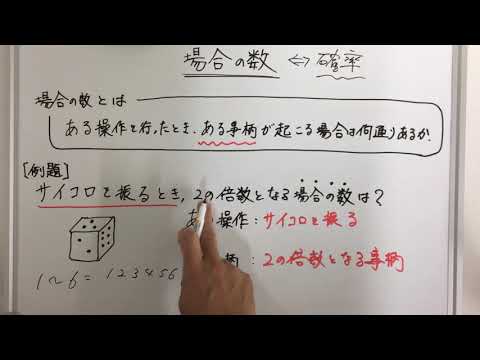 場合の数 ⇔ 確率
場合の数とは
ある操作を行ったとき、ある事柄が起こる場合は何通りあるか.
[例題]
サイコロを振るとき, 2の倍数となる場合の数は?
操作: サイコロを振る
柄: 2の倍数となる事柄
1〜6 = 1 2 3 4 5 6